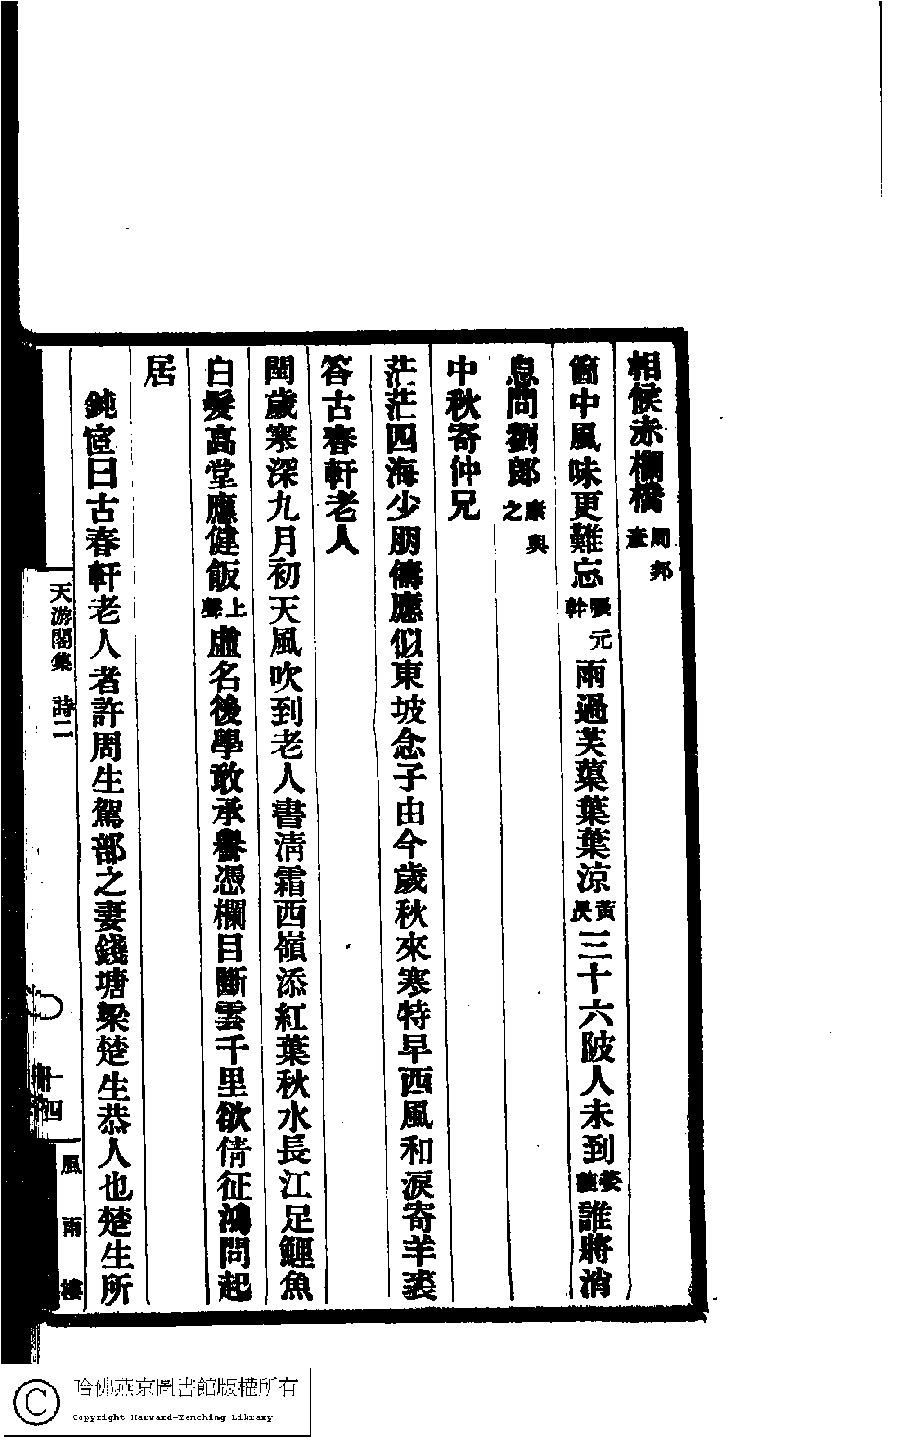 相候赤欄橋周邦彥
箇中風味更難忘張元幹雨過芙蕖葉葉涼黃㫤三十六陂人未到姜夔誰將消
息問劉郎康與之
中秋寄仲兄
茫茫四海少朋儔應似東坡念子由今歲秋來寒特早西風和淚寄羊裘
答古春軒老人
閏歲寒深九月初天風吹到老人書清霜西嶺添紅葉秋水長江足鯉魚
白髮高堂應健飯上聲虛名後學敢承譽憑欄目斷雲千里欲倩征鴻問起
居
鈍宧曰古春軒老人者許周生駕部之妻錢塘梁楚生恭人也楚生所
天游閣集 詩二
十四
風雨樓
哈佛燕京圖書館版權所有
Copyright Harvard-Yenching Library